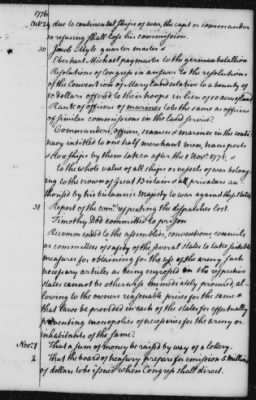 1776
Oct. 29 due to continental ships of war, the capt or commander
so refusing shall lose his commission.
30 Jacob Myle quarter master &
Eberhart Michael paymaster to the german battalion
Resolutions of Congress in answer to the resolutions
of the Convention of Maryland relative to a bounty of
10 dollars offered to their troops in lieu of 100 acres of land
Rank of officers of marines to be the same as officers
of similar commissions in the land service.
Commanders, officers, seamen & marines in the conti
navy entitled to one half merchantmen, transports
& store ships by them taken after the 1 Nov. 1776. &
to the whole value of all ships or vessels of war belong-
ing to the crown of Great Britain or all privateers au
thorised by his britannic majesty to war against these states
31 Report of the comee respecting the dispatches lost
Timothy Dod committed to prison
Recommended to the assemblies, conventions, councils
or committees of safety of the several states to take suitable
measures for obtaining for the use of the army such
necessary articles as being engrossed in the respective
states cannot be otherwise immediately procured, al-
lowing to the owner reasonable prices for the same &
that laws be provided in each of the states for effectually
preventing monopolies of necessaries for the army or
inhabitants of the same.
Nov. 1 That a sum of money be raised by way of a lottery.
2 That the board of treasury prepare for emission 5 millions
of dollars to be issued when Congress shall direct.